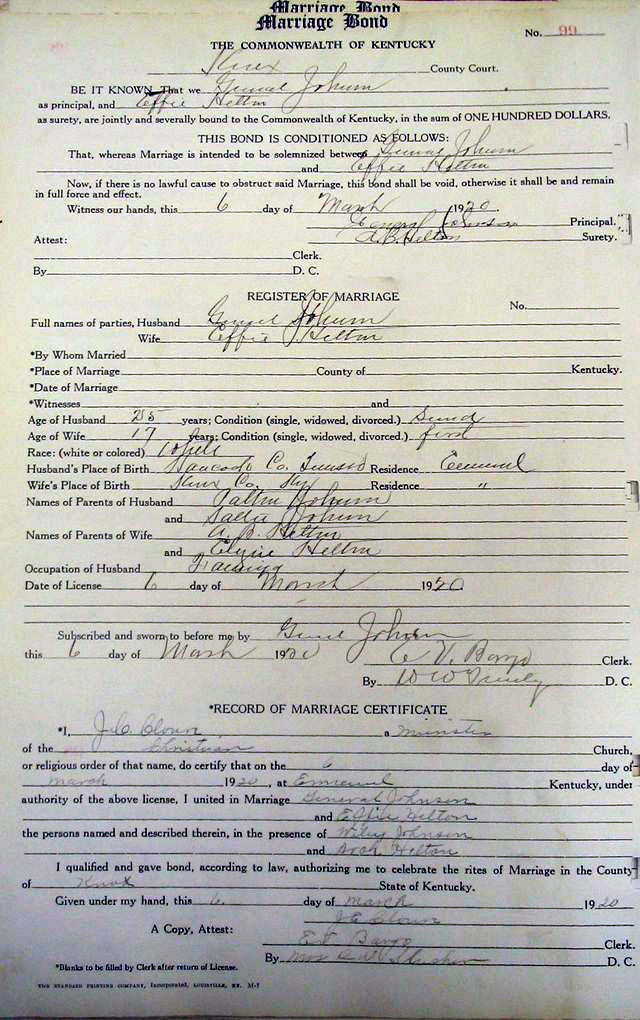 Marriage Bond
Marriage Bond
No. 99
THE COMMONWEALTH OF KENTUCKY
Knox County Court.
BE IT KNOWN That we General Johnson
as principal, and Effie Helton
as surety, are jointly and severally bound to the Commonwealth of Kentucky, in the sum of ONE HUNDRED DOLLARS.
THIS BOND IS CONDITIONED AS FOLLOWS:
That, whereas Marriage is intended to be solemnized between General Johnson
and Effie Helton
Now, if there is no lawful cause to obstruct said Marriage, this bond shall be void, otherwise it shall be and remain
in full force and effect.
Witness our hands, this 6 day of March 1920
General Johnson Principal.
Attest: A. B. Helton Surety.
Clerk.
By D. C.
REGISTER OF MARRIAGE
No.
Full names of parties, Husband General Johnson
Wife Effie Helton
*By Whom Married
*Place of Marriage County of Kentucky.
*Date of Marriage
*Witnesses and
Age of Husband 25 years; Condition (single, widowed, divorced.)
Age of Wife 17 years; Condition (single, widowed, divorced.) first
Race: (white or colored) White
Husband's Place of Birth Hancock Co. Residence
Wife's Place of Birth Knox Co. Ky Residence "
Names of Parents of Husband Johnson
and Sallie Johnson
Names of Parents of Wife A. B. Helton
and Helton
Occupation of Husband Farming
Date of License 6 day of March 1920
Subscribed and sworn to before me by General Johnson
this 6 day of March 1920 Clerk.
By D. C.
*RECORD OF MARRIAGE CERTIFICATE
*I, J. C. a minister
of the Christian Church,
or religious order of that name, do certify that on the 6 day of
march 1920, at Kentucky, under
authority of the above license, I united in Marriage General Johnson
and Effie Helton
the persons named and described therein, in the presence of Wiley Johnson
and Arch Helton
I qualified and gave bond, according to law, authorizing me to celebrate the rites of Marriage in the County
of Knox State of Kentucky.
Given under my hand, this 6 day of march 1920
A Copy, Attest:
Clerk.
By Mrs D. C.
*Blanks to be filled by Clerk after return of License.
THE STANDARD PRINTING COMPANY, Incorporated, LOUISVILLE, KY. M-7